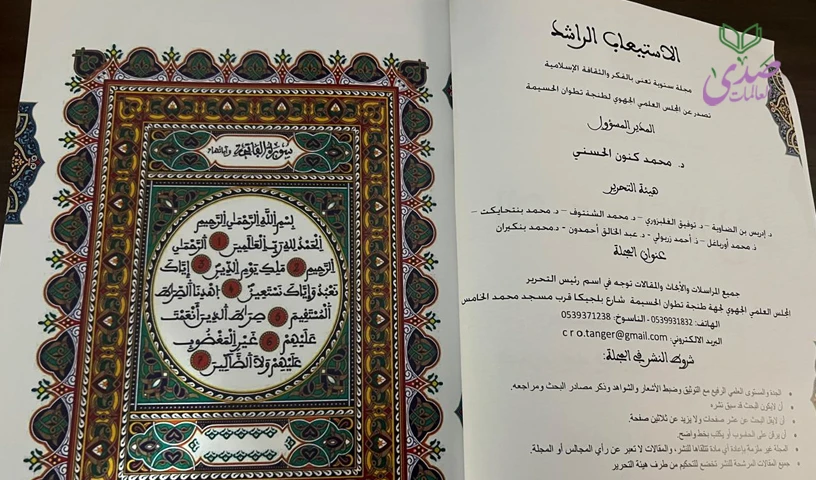 الاستيعاب الراشد
مجلة سنوية تعنى بالفكر والثقافة الإسلامية
تصدر عن المجلس العلمي الجهوي لطنجة تطوان الحسيمة
المدير المسؤول
د. محمد كنون الحسني
هيئة التحرير
د. إدريس بن الضاوية – د. توفيق الغلبزوري – د. محمد الشنتوف – د. محمد بنتحايكت –
ذ. محمد أورياغل – ذ. أحمد زربولي – د. عبد الخالق أحمدون – د. محمد بنكيران
عنوان المجلة
جميع المراسلات والأبحاث والمقالات توجه في اسم رئيس التحرير
المجلس العلمي الجهوي لجهة طنجة تطوان الحسيمة شارع بلجيكا قرب مسجد محمد الخامس
الهاتف: 0539931832 - الناسوخ: 0539371238
البريد الالكتروني: cro.tanger@gmail.com
شروط النشر في المجلة:
الجدة والمستوى العلمي الرفيع مع التوثيق وضبط الأشعار والشواهد وذكر مصادر البحث ومراجعه.
أن لايكون البحث قد سبق نشره
أن لايقل البحث عن عشر صفحات ولا يزيد عن ثلاثين صفحة.
أن يرقن على الحاسوب أو يكتب بخط واضح.
المجلة غير ملزمة بإعادة أي مادة تتلقاها للنشر، والمقالات لا تعبر عن رأي المجالس أو المجلة.
جميع المقالات المرشحة للنشر تخضع للتحكيم من طرف هيئة التحرير
سورة الفاتحة
بسم الله الرحمن الرحيم
الحمد لله رب العالمين 1 الرحمن
الرحيم 2 ملك يوم الدين 3 إياك
نعبد وإياك نستعين 4 اهدنا الصراط
المستقيم 5 صراط الذين أنعمت
عليهم 6 غير المغضوب
عليهم ولا الضالين 7
صدى
العالمات